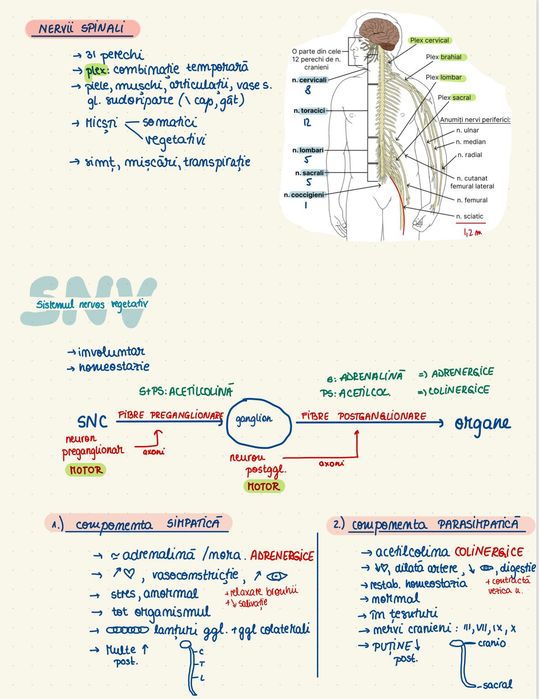 NERVII SPINALI
→ 31 perechi
→ plex: combinație temporară
→ piele, mușchi, articulații, vase s.
gl. sudoripare (\ cap, gât)
→ MICȘTI
somatici
vegetativi
→ simț, mișcări, transpirație
O parte din cele
12 perechi de n.
cranieni
n. cervicali
8
n. toracici
12
n. lombari
5
n. sacrali
5
n. coccigieni
1
Plex cervical
Plex brahial
Plex lombar
Plex sacral
Anumiți nervi periferici:
n. ulnar
n. median
n. radial
n. cutanat
femural lateral
n. femural
n. sciatic
1,2 m
SNV
Sistemul nervos vegetativ
→ involuntar
→ homeostazie
S+PS: ACETILCOLINĂ
S: ADRENALINĂ => ADRENERGICE
PS: ACETILCOL. => COLINERGICE
SNC
FIBRE PREGANGLIONARE
ganglion
FIBRE POSTGANGLIONARE
organe
neuron
preganglionar
MOTOR
axoni
neuron
postggl.
MOTOR
axoni
1.) componenta SIMPATICĂ
→ ≃ adrenalină /nora. ADRENERGICE
→ ↗♡, vasoconstricție, ↗
→ stres, anormal
+ relaxare bronhii
+ ↓ salivație
→ tot organismul
→ lanțuri ggl. + ggl colaterali
→ Multe ↑
post.
C
T
L
2.) componenta PARASIMPATICĂ
→ acetilcolina COLINERGICE
→ ↓♡, dilată artere, ↓ , digestie
→ restab. homeostazia
+ contractă
vezica u.
→ normal
→ în țesuturi
→ nervi cranieni: III, VII, IX, X
→ PUȚINE ↓
post.
cranio
sacral